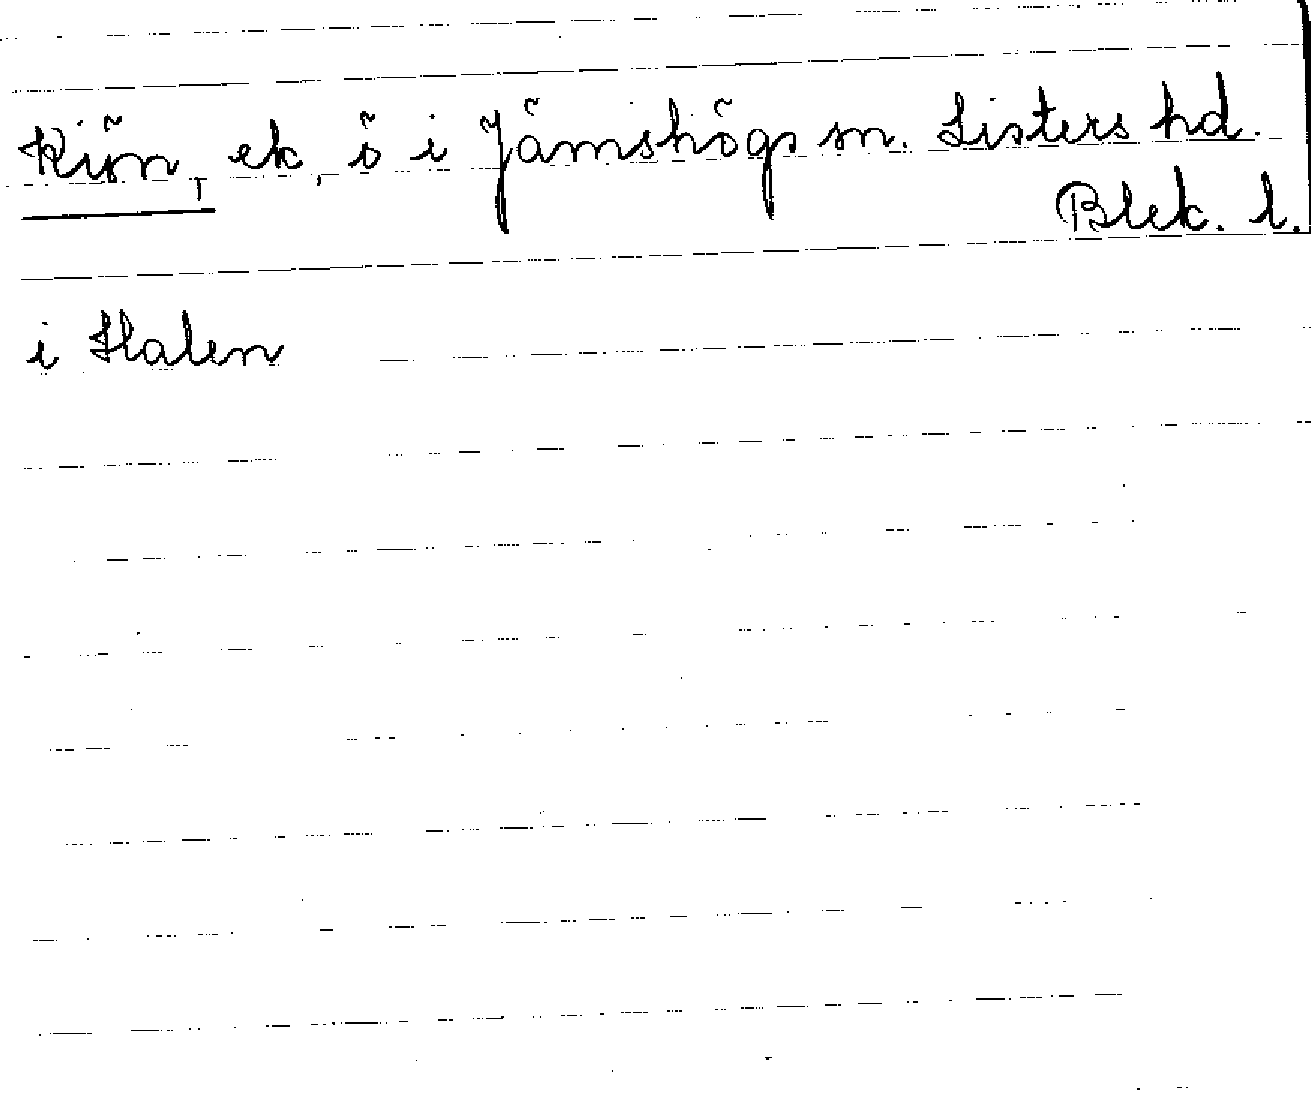 Kiön, ek, ö i Jämshögs sn. Listers hd.
Blek. l.
i Halen